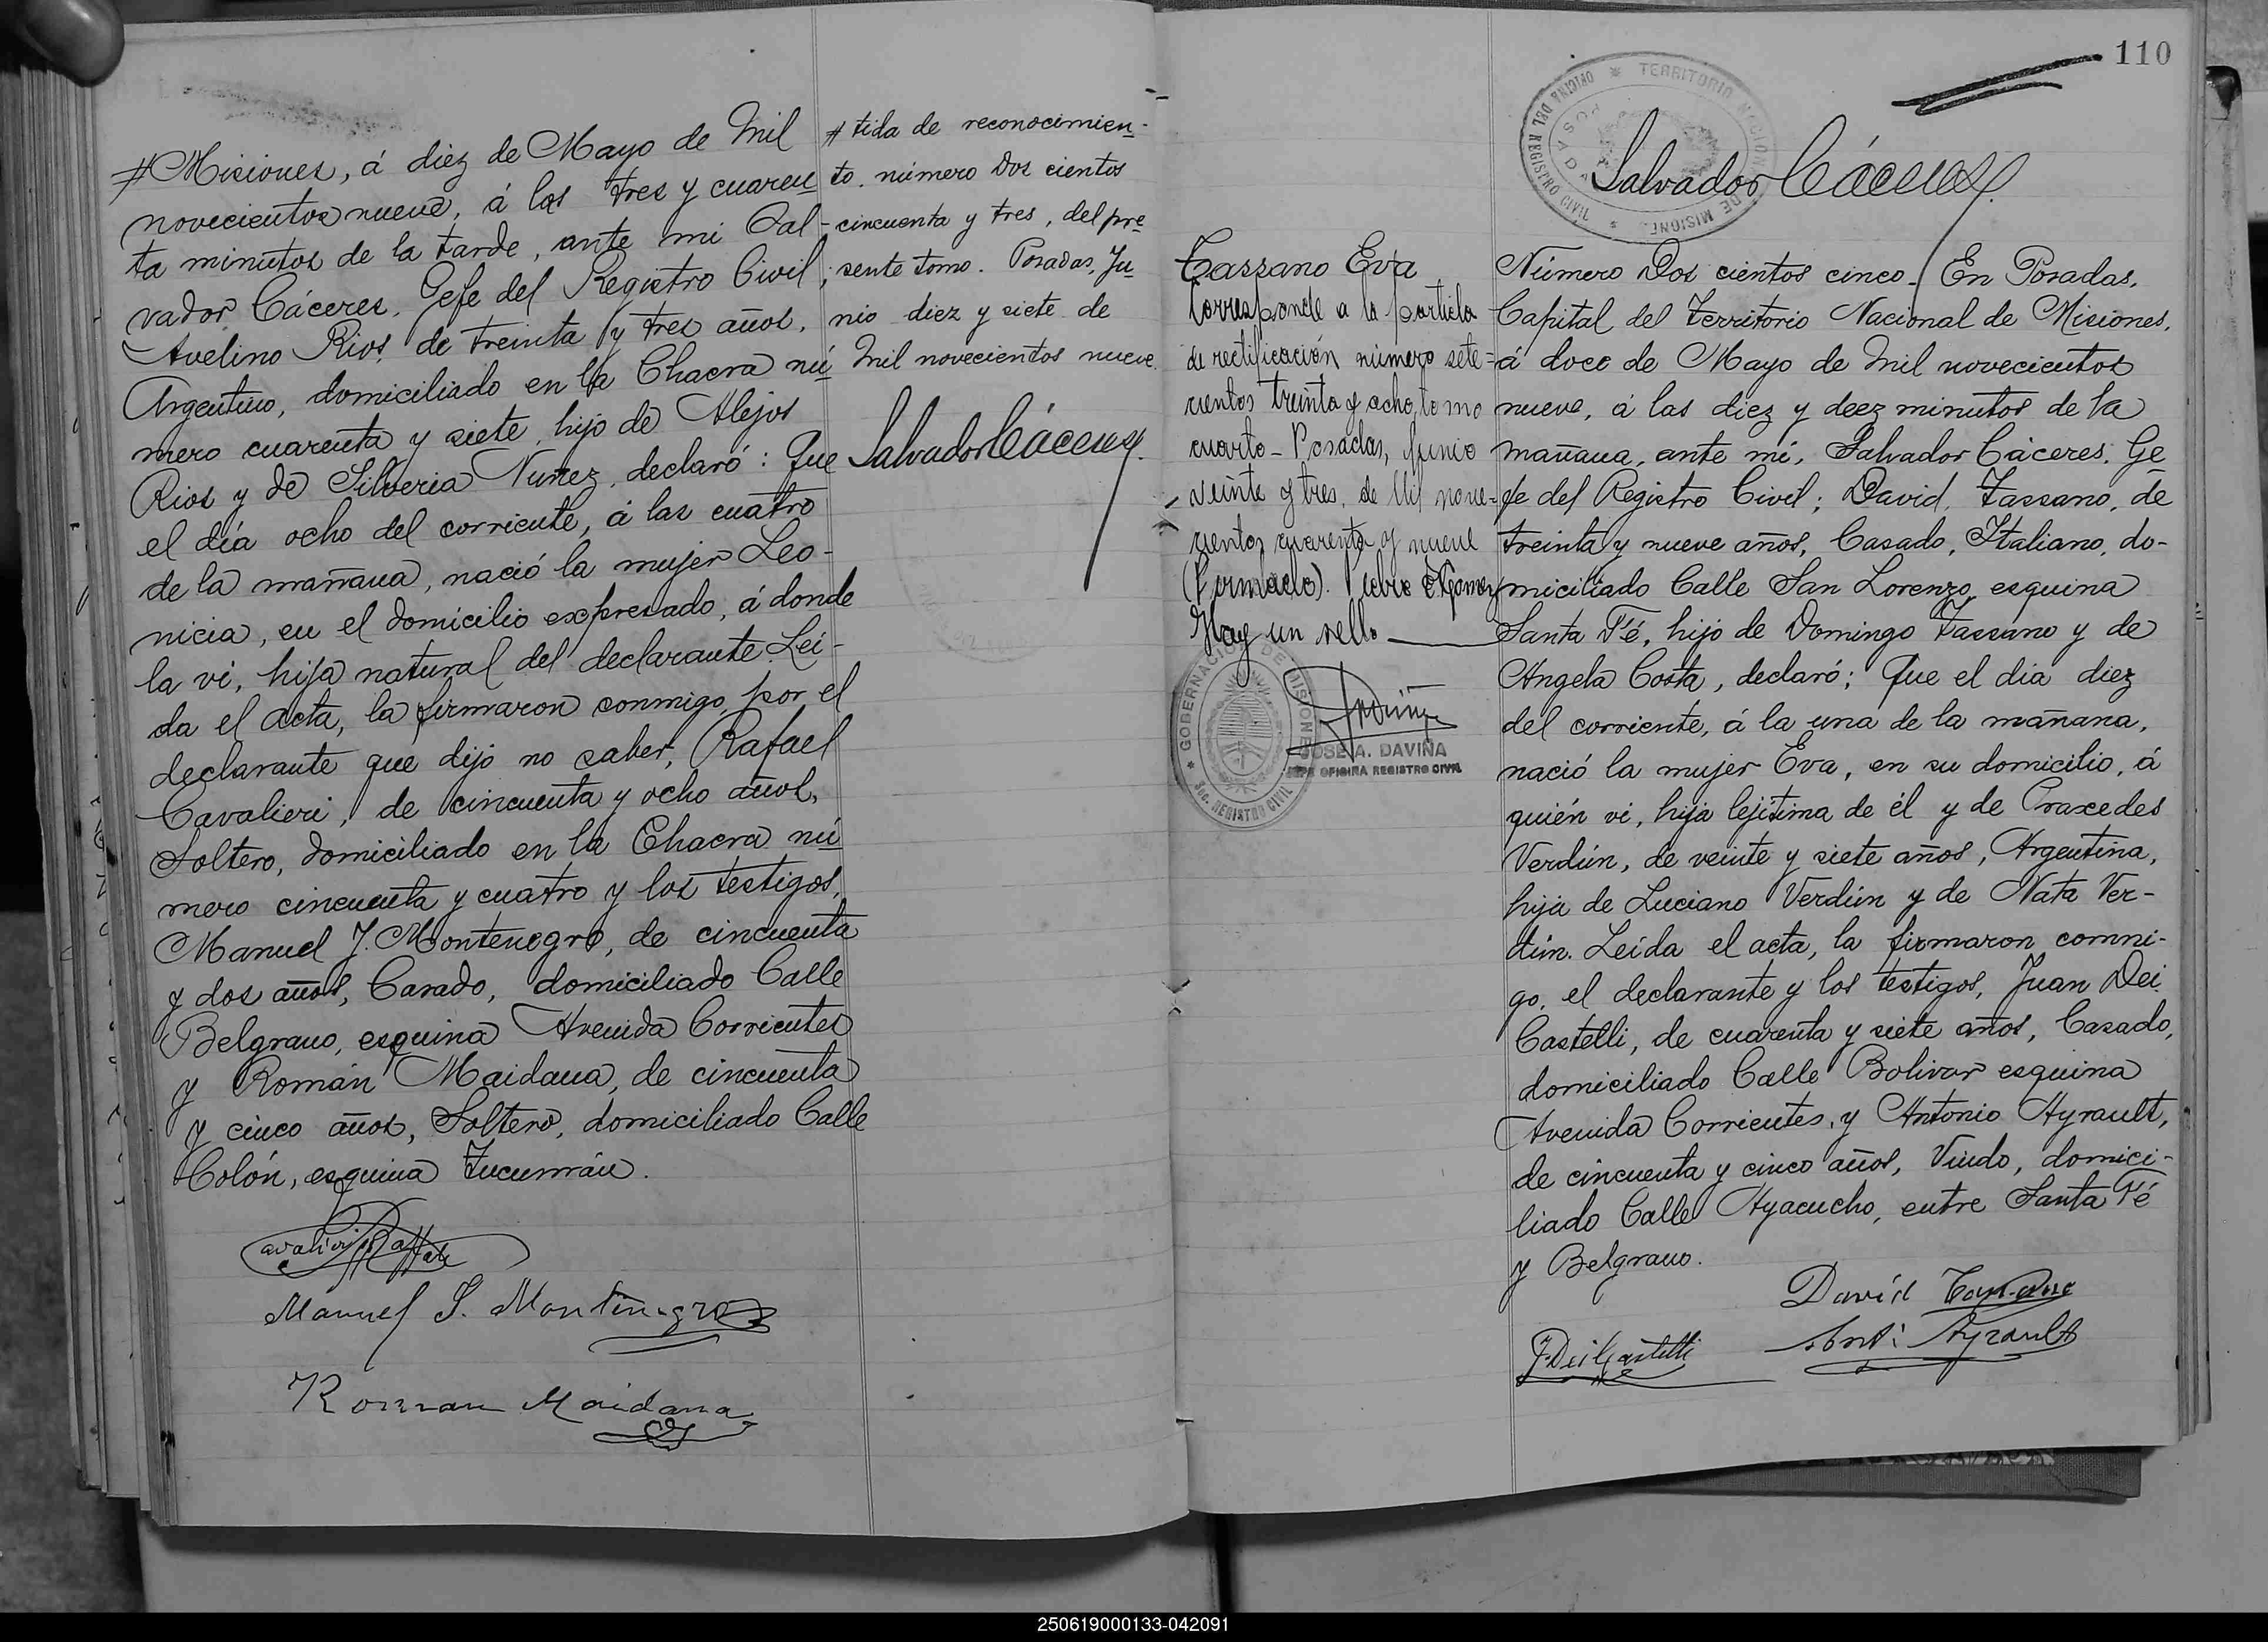 #Misiones, á diez de Mayo de Mil
novecientos nueve, á las tres y cuaren
ta minutos de la tarde, ante mi Sal-
vador Cáceres, Gefe del Registro Civil;
Avelino Rios, de treinta y tres años,
Argentino, domiciliado en la Chacra nú
mero cuarenta y siete, hijo de Alejos
Rios y de Silveria Nuñez, declaró: Que
el día ocho del corriente, á las cuatro
de la mañana, nació la mujer Leo-
nicia, en el domicilio expresado, á donde
la vi, hija natural del declarante. Leí-
da el acta, la firmaron conmigo, por el
declarante que dijo no saber, Rafael
Cavalieri, de cincuenta y ocho años,
Soltero, domiciliado en la Chacra nú
mero cincuenta y cuatro y los testigos,
Manuel J. Montenegro, de cincuenta
y dos años, Casado, domiciliado Calle
Belgrano, esquina Avenida Corrientes
y Román Maidana, de cincuenta
y cinco años, Soltero, domiciliado Calle
Colón, esquina Tucumán.
Cavalieri Raffaele
Manuel J. Montenegro
Roman Maidana
# tida de reconocimien-
to. número Dos cientos
cincuenta y tres, del pre
sente tomo. Posadas, Ju
nio diez y siete de
Mil novecientos nueve.
Salvador Cáceres.
110
OFICINA DEL REGISTRO CIVIL * TERRITORIO NACIONAL DE MISIONES *
POSADAS
Salvador Cáceres.
Tassano Eva
Corresponde a la partida
de rectificación número sete-
cientos treinta y ocho, tomo
cuarto - Posadas, Junio
veinte y tres, de Mil nove-
cientos cuarenta y nueve
(Firmado). Gomez
Hay un sello
* GOBERNACION DE MISIONES *
SEC. REGISTRO CIVIL
JOSE A. DAVIÑA
JEFE OFICINA REGISTRO CIVIL
Número Dos cientos cinco. En Posadas,
Capital del Territorio Nacional de Misiones,
á doce de Mayo de Mil novecientos
nueve, á las diez y deez minutos de la
mañana, ante mí, Salvador Cáceres, Ge
fe del Registro Civil; David Tassano, de
treinta y nueve años, Casado, Italiano, do-
miciliado Calle San Lorenzo, esquina
Santa Fé, hijo de Domingo Tassano y de
Angela Costa, declaró; Que el dia diez
del corriente, á la una de la mañana,
nació la mujer Eva, en su domicilio, á
quién vi, hija lejítima de él y de Praxedes
Verdún, de veinte y siete años, Argentina,
hija de Luciano Verdún y de Nata Ver-
dún. Leída el acta, la firmaron conmi-
go, el declarante y los testigos, Juan Dei
Castelli, de cuarenta y siete años, Casado,
domiciliado Calle Bolivar esquina
Avenida Corrientes, y Antonio Ayrault,
de cincuenta y cinco años, Viudo, domici-
liado Calle Ayacucho, entre Santa Fé
y Belgrano.
David Tassano
J. Dei Castelli
Ant: Ayrault
250619000133-042091